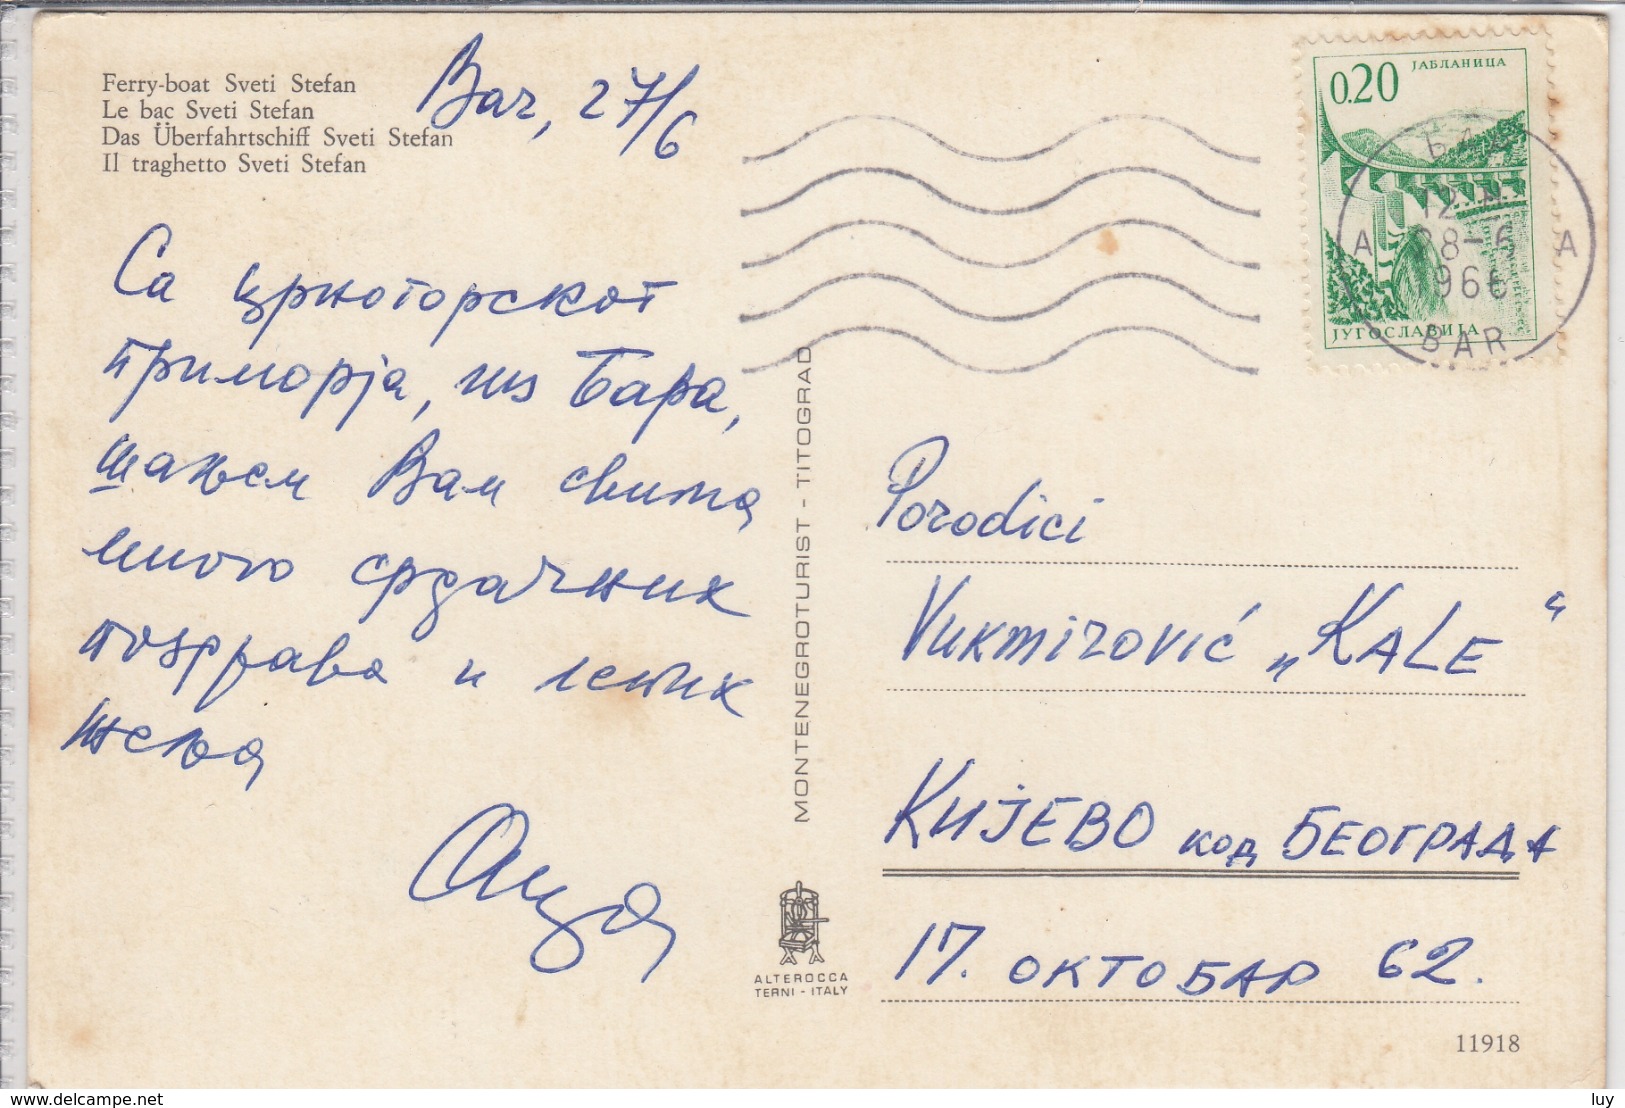 Ferry-boat Sveti Stefan
Le bac Sveti Stefan
Das Überfahrtschiff Sveti Stefan
Il traghetto Sveti Stefan
Bar, 27/6
Са црногорског
приморја, из Бара,
шаљем Вам свима
много срдачних
поздрава и лепих
жеља
Аца
MONTENEGROTURIST - TITOGRAD
ALTEROCCA
TERNI - ITALY
0.20 ЈАБЛАНИЦА
ЈУГОСЛАВИЈА
БАР
A 28-6 A
966
BAR
Porodici
Vukmirović „KALE“
КИЈЕВО код БЕОГРАДА
17. ОКТОБАР 62.
11918
delcampe.net
luy